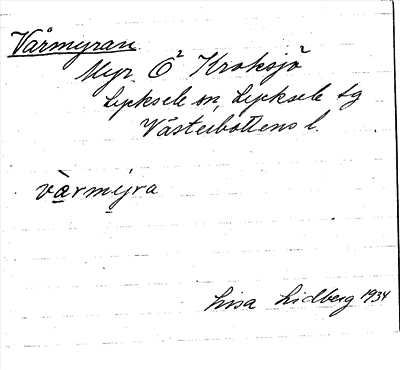 Vårmyran
Myr Ö² Kroksjö
Lycksele sn, Lycksele tg
Västerbottens l.
vårmy̱ra
Lisa Lidberg 1934